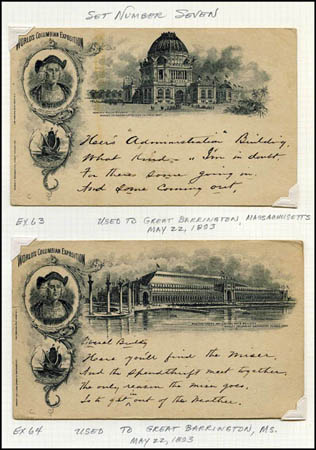 SET NUMBER SEVEN
WORLD'S COLUMBIAN EXPOSITION
Here's "Administration" Building,
What Kind - "I'm in doubt
For there's some going in.
And some Coming out,
EX 63 USED TO GREAT BARRINGTON, MASSACHUSETTS
MAY 22, 1893
WORLD'S COLUMBIAN EXPOSITION
Here you'll find the Miser,
And the Spendthrift meet together,
the only reason the miser goes,
Is to get "out of the Weather.
EX 64 USED TO GREAT BARRINGTON, MS.
MAY 22, 1893